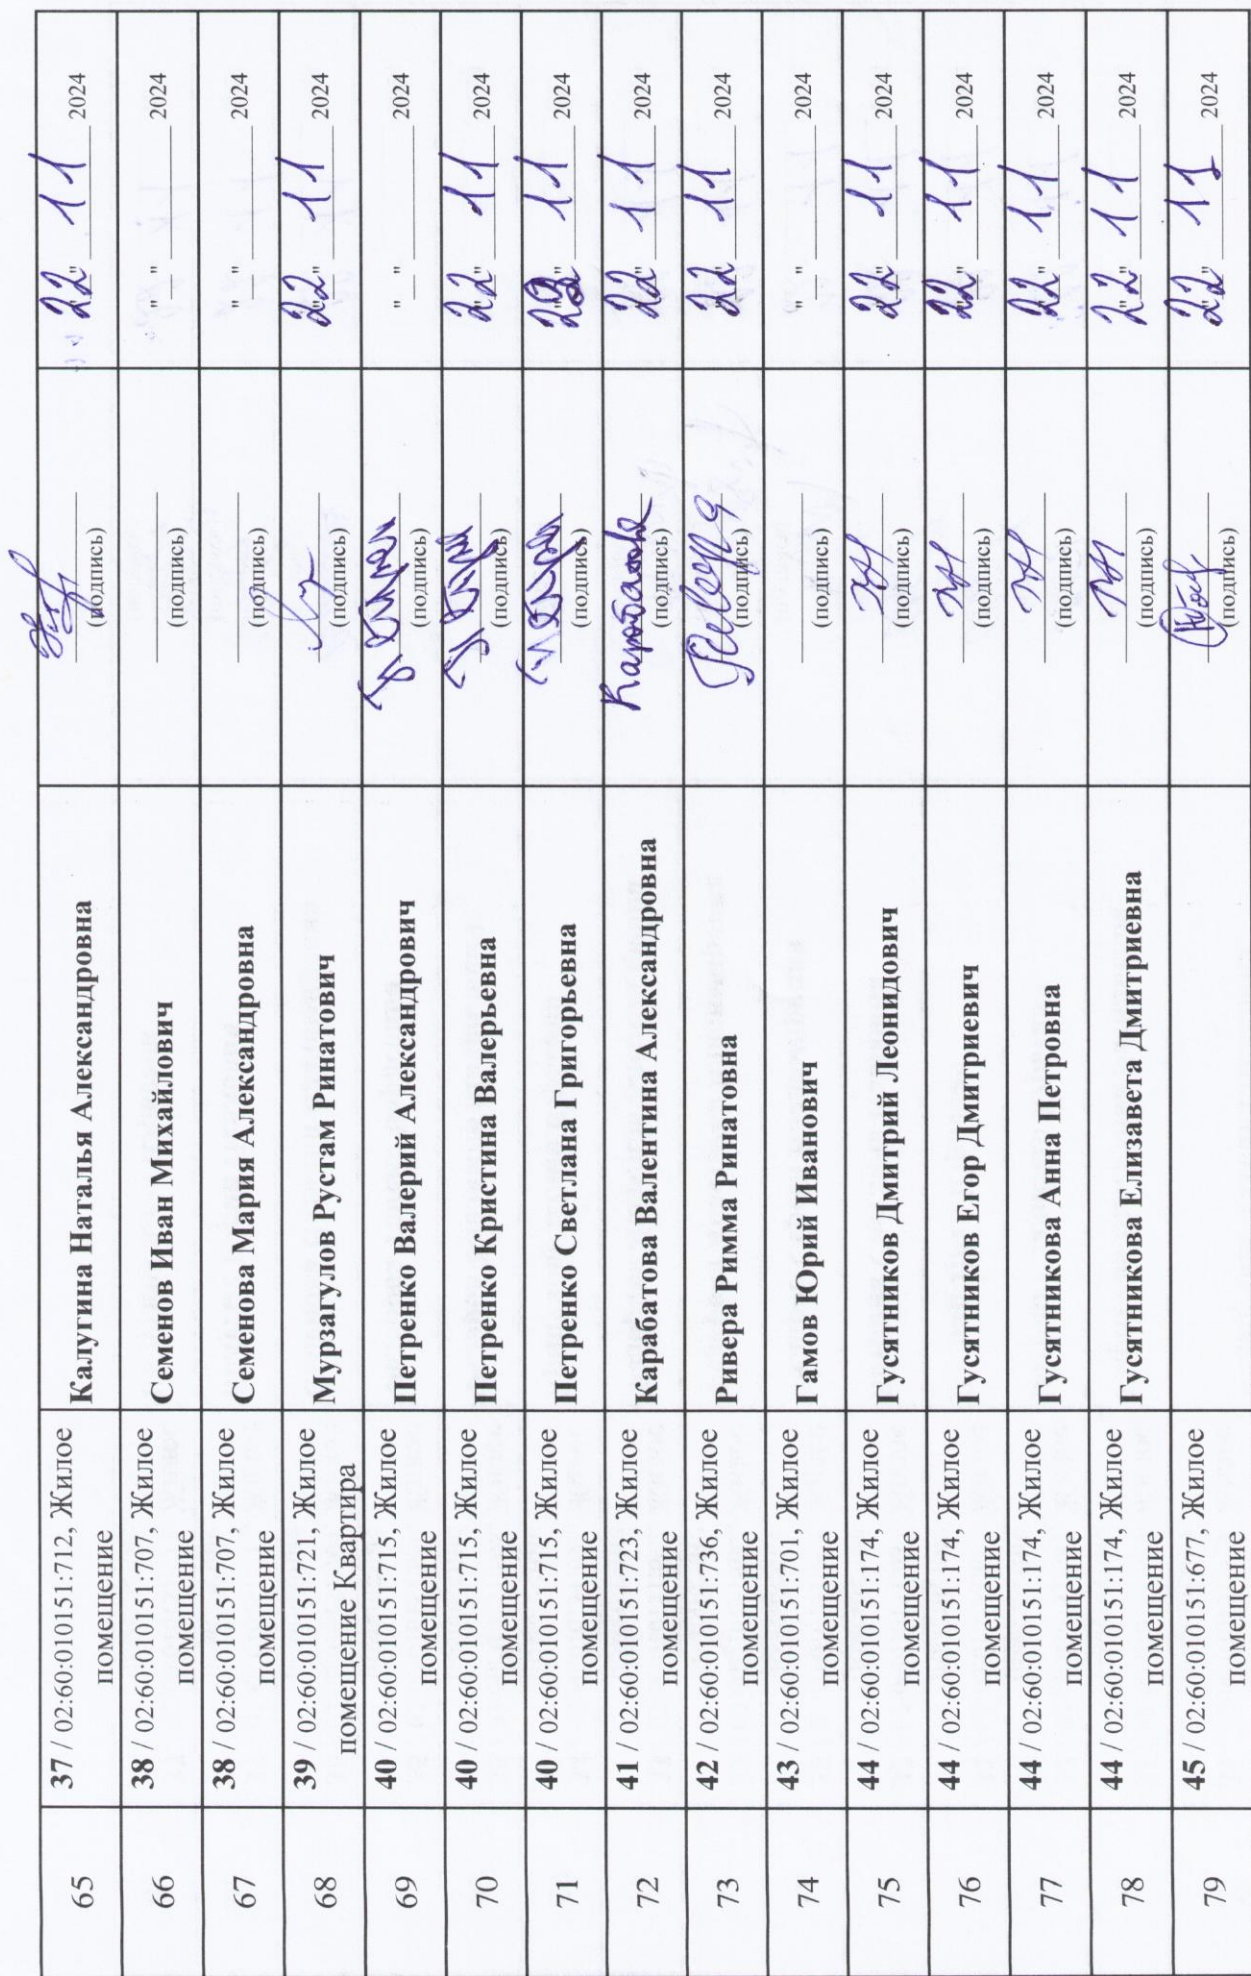 65 37 / 02:60:010151:712, Жилое помещение Калугина Наталья Александровна (подпись) "22" 11 2024
66 38 / 02:60:010151:707, Жилое помещение Семенов Иван Михайлович (подпись) " " 2024
67 38 / 02:60:010151:707, Жилое помещение Семенова Мария Александровна (подпись) " " 2024
68 39 / 02:60:010151:721, Жилое помещение Квартира Мурзагулов Рустам Ринатович (подпись) "22" 11 2024
69 40 / 02:60:010151:715, Жилое помещение Петренко Валерий Александрович (подпись) " " 2024
70 40 / 02:60:010151:715, Жилое помещение Петренко Кристина Валерьевна (подпись) "22" 11 2024
71 40 / 02:60:010151:715, Жилое помещение Петренко Светлана Григорьевна (подпись) "22" 11 2024
72 41 / 02:60:010151:723, Жилое помещение Карабатова Валентина Александровна (подпись) "22" 11 2024
73 42 / 02:60:010151:736, Жилое помещение Ривера Римма Ринатовна Ривера (подпись) "22" 11 2024
74 43 / 02:60:010151:701, Жилое помещение Гамов Юрий Иванович (подпись) " " 2024
75 44 / 02:60:010151:174, Жилое помещение Гусятников Дмитрий Леонидович (подпись) "22" 11 2024
76 44 / 02:60:010151:174, Жилое помещение Гусятников Егор Дмитриевич (подпись) "22" 11 2024
77 44 / 02:60:010151:174, Жилое помещение Гусятникова Анна Петровна (подпись) "22" 11 2024
78 44 / 02:60:010151:174, Жилое помещение Гусятникова Елизавета Дмитриевна (подпись) "22" 11 2024
79 45 / 02:60:010151:677, Жилое помещение (подпись) "22" 11 2024